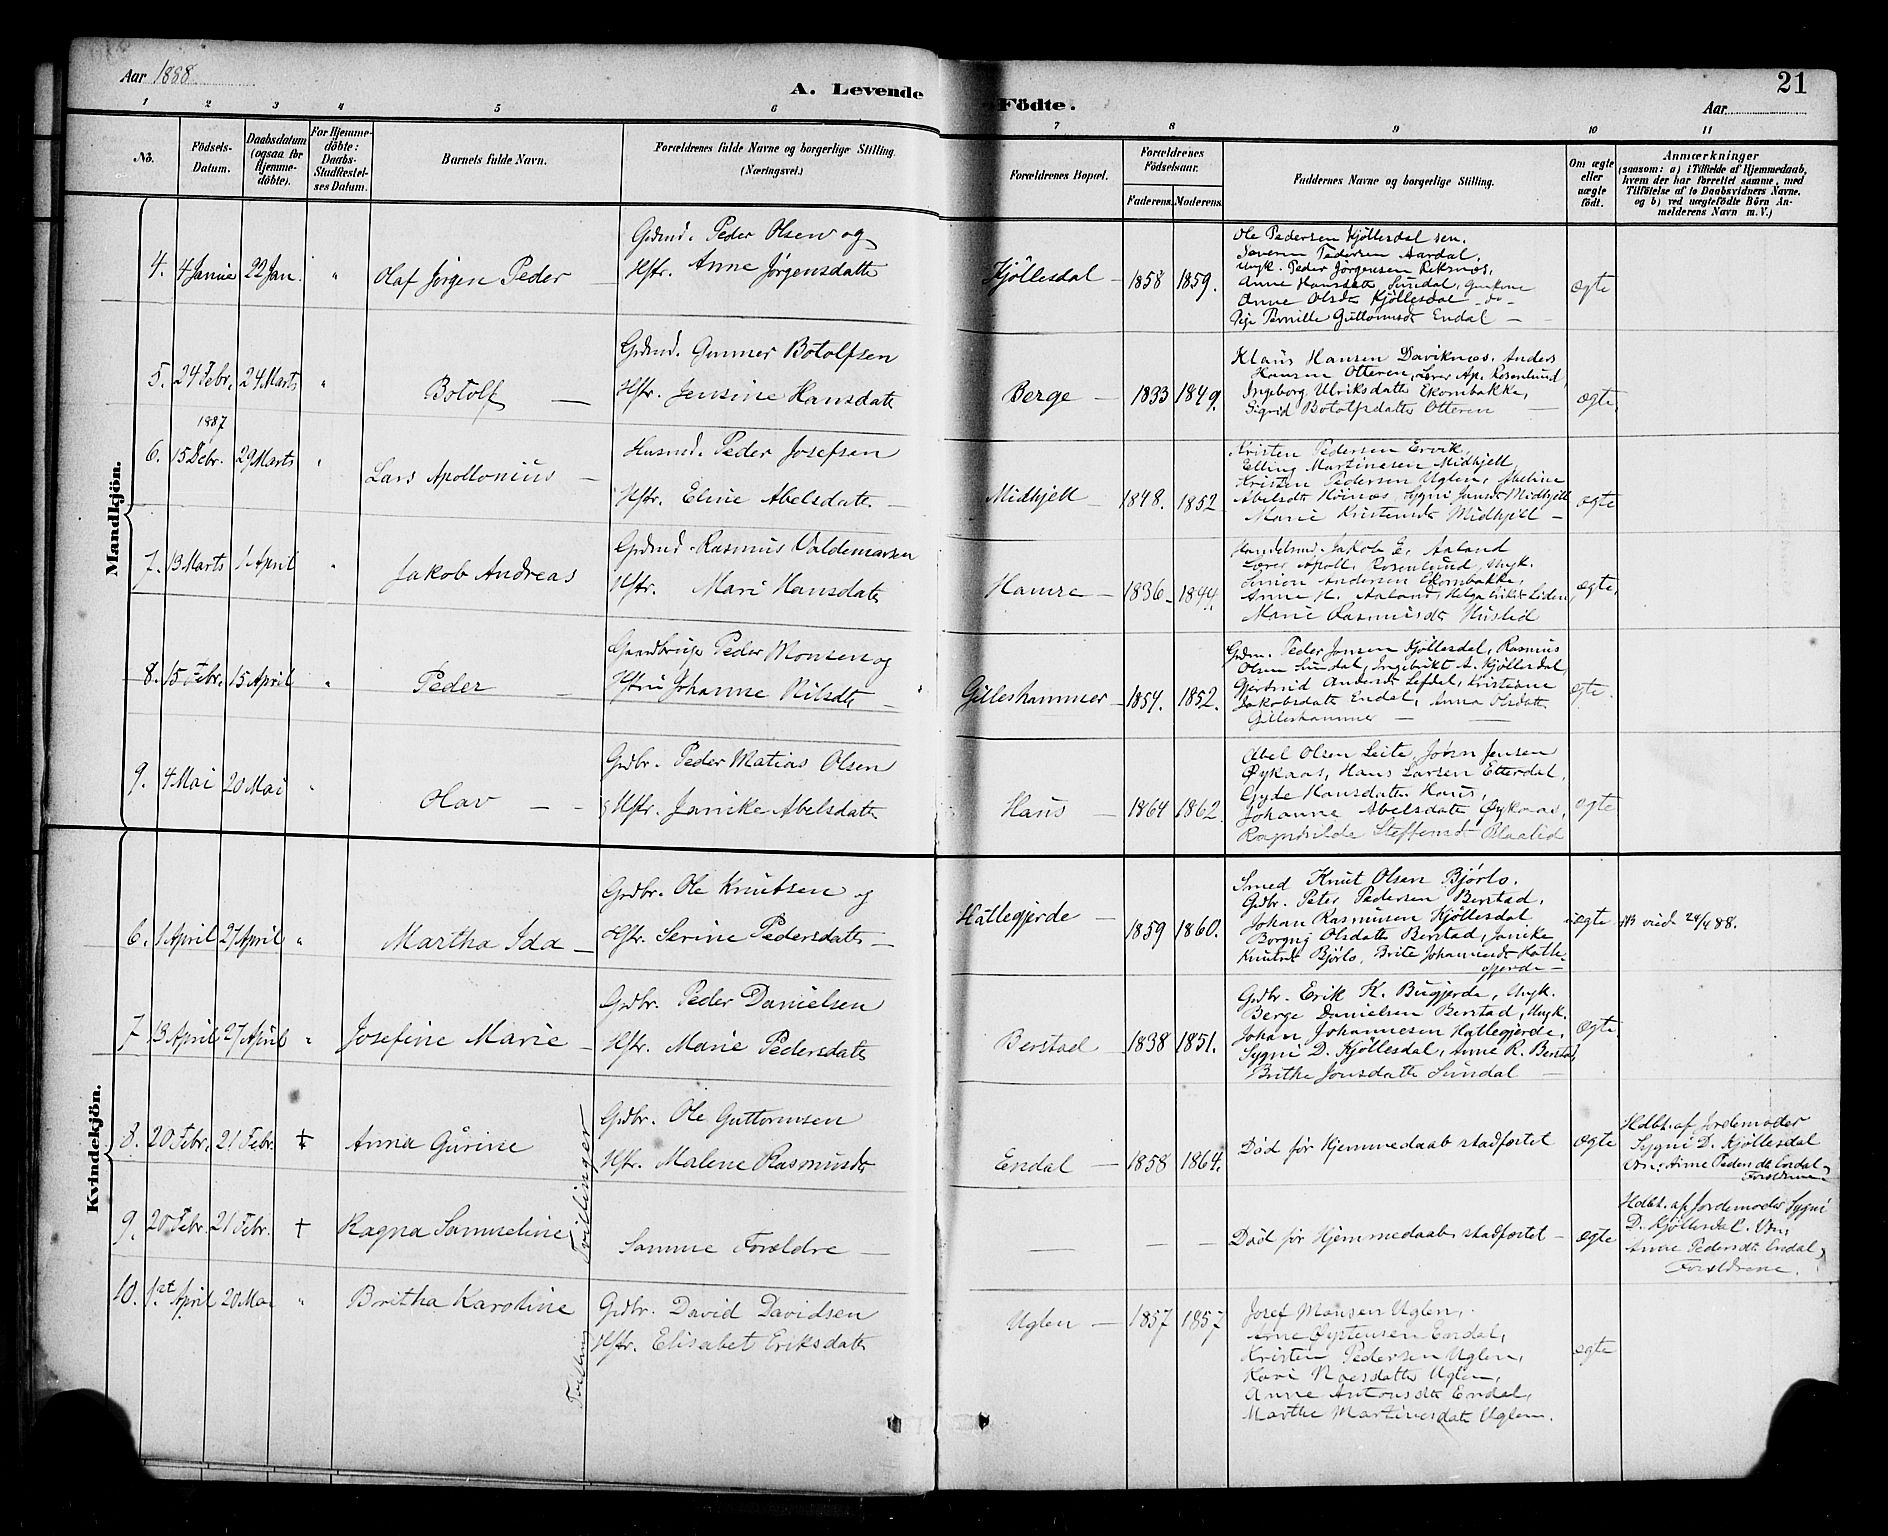 Aar 1888
A. Levende Födte.
21
Aar
1 2 3 4 5 6 7 8 9 10 11
No.
Födsels-Datum.
Daabsdatum (ogsaa for Hjemme-döbte).
For Hjemme-döbte: Daabs-Stadfæstel-ses Datum.
Barnets fulde Navn.
Forældrenes fulde Navne og borgerlige Stilling. (Næringsvei.)
Forældrenes Bopæl.
Forældrenes Födselsaar.
Faderens. Moderens.
Faddernes Navne og borgerlige Stilling.
Om ægte eller uægte födt.
Anmærkninger
(saasom: a) i Tilfælde af Hjemmedaab, hvem der har forrettet samme, med Tilföielse af to Daabsvidners Navne. og b) ved uægtefödte Börn An-melderens Navn m. V.)
Mandkjön.
4. 4 Janue 22 Jan. " Olaf Jørgen Peder
Grdmd. Peder Olsen og
Hstr. Anne Jørgensdattr
Kjöllesdal 1858 1859.
Ole Pedersen Kjöllesdal sen.
Severin Pedersen Aardal,
Ungk. Peder Jörgensen Reksnæs,
Anne Hansdatt Sundal,
Anne Olsdt Kjöllesdal - do -
Pige Pernille Guttormsdt Endal
ægte
5. 24 Febr. 24 Marts " Botolf
Grdmd. Gunner Botolfsen
Hstr. Jensine Hansdatt
Berge 1833 1849.
Klaus Hansen Daviknæs, Anders
Hansen Otteren, Lærer Ap. Rosenlund,
Ingeborg Ulriksdattr Ekornbakke,
Sigrid Botolfsdattr Otteren
ægte
1887
6. 15 Debr. 29 Marts " Lars Apollonius
Husmd. Peder Josefsen
Hstr. Eline Abelsdattr
Midhjell 1848. 1852
Kristen Pedersen Ervik,
Elling Martinesen Midhjell,
Kristen Pedersen Uglen, Abeline
Abelsdt Hönæs, Sygni Jansdt Midhjell
Marie Kristensdt Midhjell
ægte
7. 13 Marts 1 April " Jakob Andreas
Grdmd. Rasmus Valdemarsen
Hstr. Mari Hansdattr
Hamre 1836 1844
Handelsmd. Jakob E. Aaland
Lærer Apoll. Rosenlund, Ungk.
Simon Andersen Ekornbakke,
Anne H. Aaland,
Marie Rasmusdt Hustid
ægte
8. 15 Febr. 15 April " Peder
Gaardbruge Peder Monsen og
Hstru Johanne Nilsdtr
Gilleshammer 1854. 1852.
Grdm. Peder Jensen Kjöllesdal, Rasmus
Olsen Sundal, Ingebrikt A. Kjöllesdal,
Gjertrud Andersdt Lefdal, Kristiane
Jakobsdattr Endal, Anna Olsdattr
Gilleshammer
ægte
9. 4 Mai 20 Mai " Olav
Grdbr. Peder Matias Olsen
Hstr. Janike Abelsdattr
Haus 1864 1862.
Abel Olsen Leite, Jörn Jensen
Öykaas, Hans Larsen Etterdal,
Gyde Hansdattr Haus,
Johanne Abelsdattr Öykaas,
Ragnhilde Steffensdt Blaalid
ægte
Kvindekjön.
6. 1 April 27 April " Martha Ida
Grdbr. Ole Knutsen og
Hstr. Serine Pedersdattr
Hattegjerde 1859 1860.
Smed Knut Olsen Bjørlo.
Grdbr. Peter Pedersen Berstad,
Johan Rasmusen Kjöllesdal
Borgny Olsdattr Berstad, Janike
Knutsdt Bjørlo, Brite Johannesdt Hatte-
gjerde
ægte
24/4 88.
7 13 April 27 April " Josefine Marie
Grdbr. Peder Danielsen
Hstr. Marie Pedersdattr
Berstad 1838 1851.
Grdbr. Erik K. Bugjerde, Ungk.
Berge Danielsen Berstad, Ungk.
Johan Johannesen Hattegjerde,
Sygni D. Kjöllesdal, Anne R. Berstad
Brithe Jonsdattr Sundal
ægte
8. 20 Febr. 21 Febr. + Anna Gurine
Tvillinger
Grdbr. Ole Guttormsen
Hstr. Malene Rasmusdt
Endal 1858 1864.
Död för Hjemmedaab stadfæstet
ægte
Hdbt. af Jordemoder
Sygni D. Kjöllesdal
Vn: Anne Pedersdt Endal
Forældrene
9. 20 Febr. 21 Febr. + Ragna Samueline
Samme Forældre
Död för Hjemmedaab stadfæstet
ægte
Hdbt. af Jordemoder Sygni
D. Kjöllesdal. Vn,
Anne Pedersdt Endal
Forældrene.
10. 1st April 20 Mai " Britha Karoline
Tvilling
Grdbr. David Davidsen
Hstr. Elisabet Eriksdattr
Uglen 1857 1857
Josef Monsen Uglen,
Arne Öystensen Endal,
Kristen Pedersen Uglen,
Kari Naesdattr Uglen,
Anne Antonsdtr Endal,
Marthe Martinesdatt Uglen.
ægte